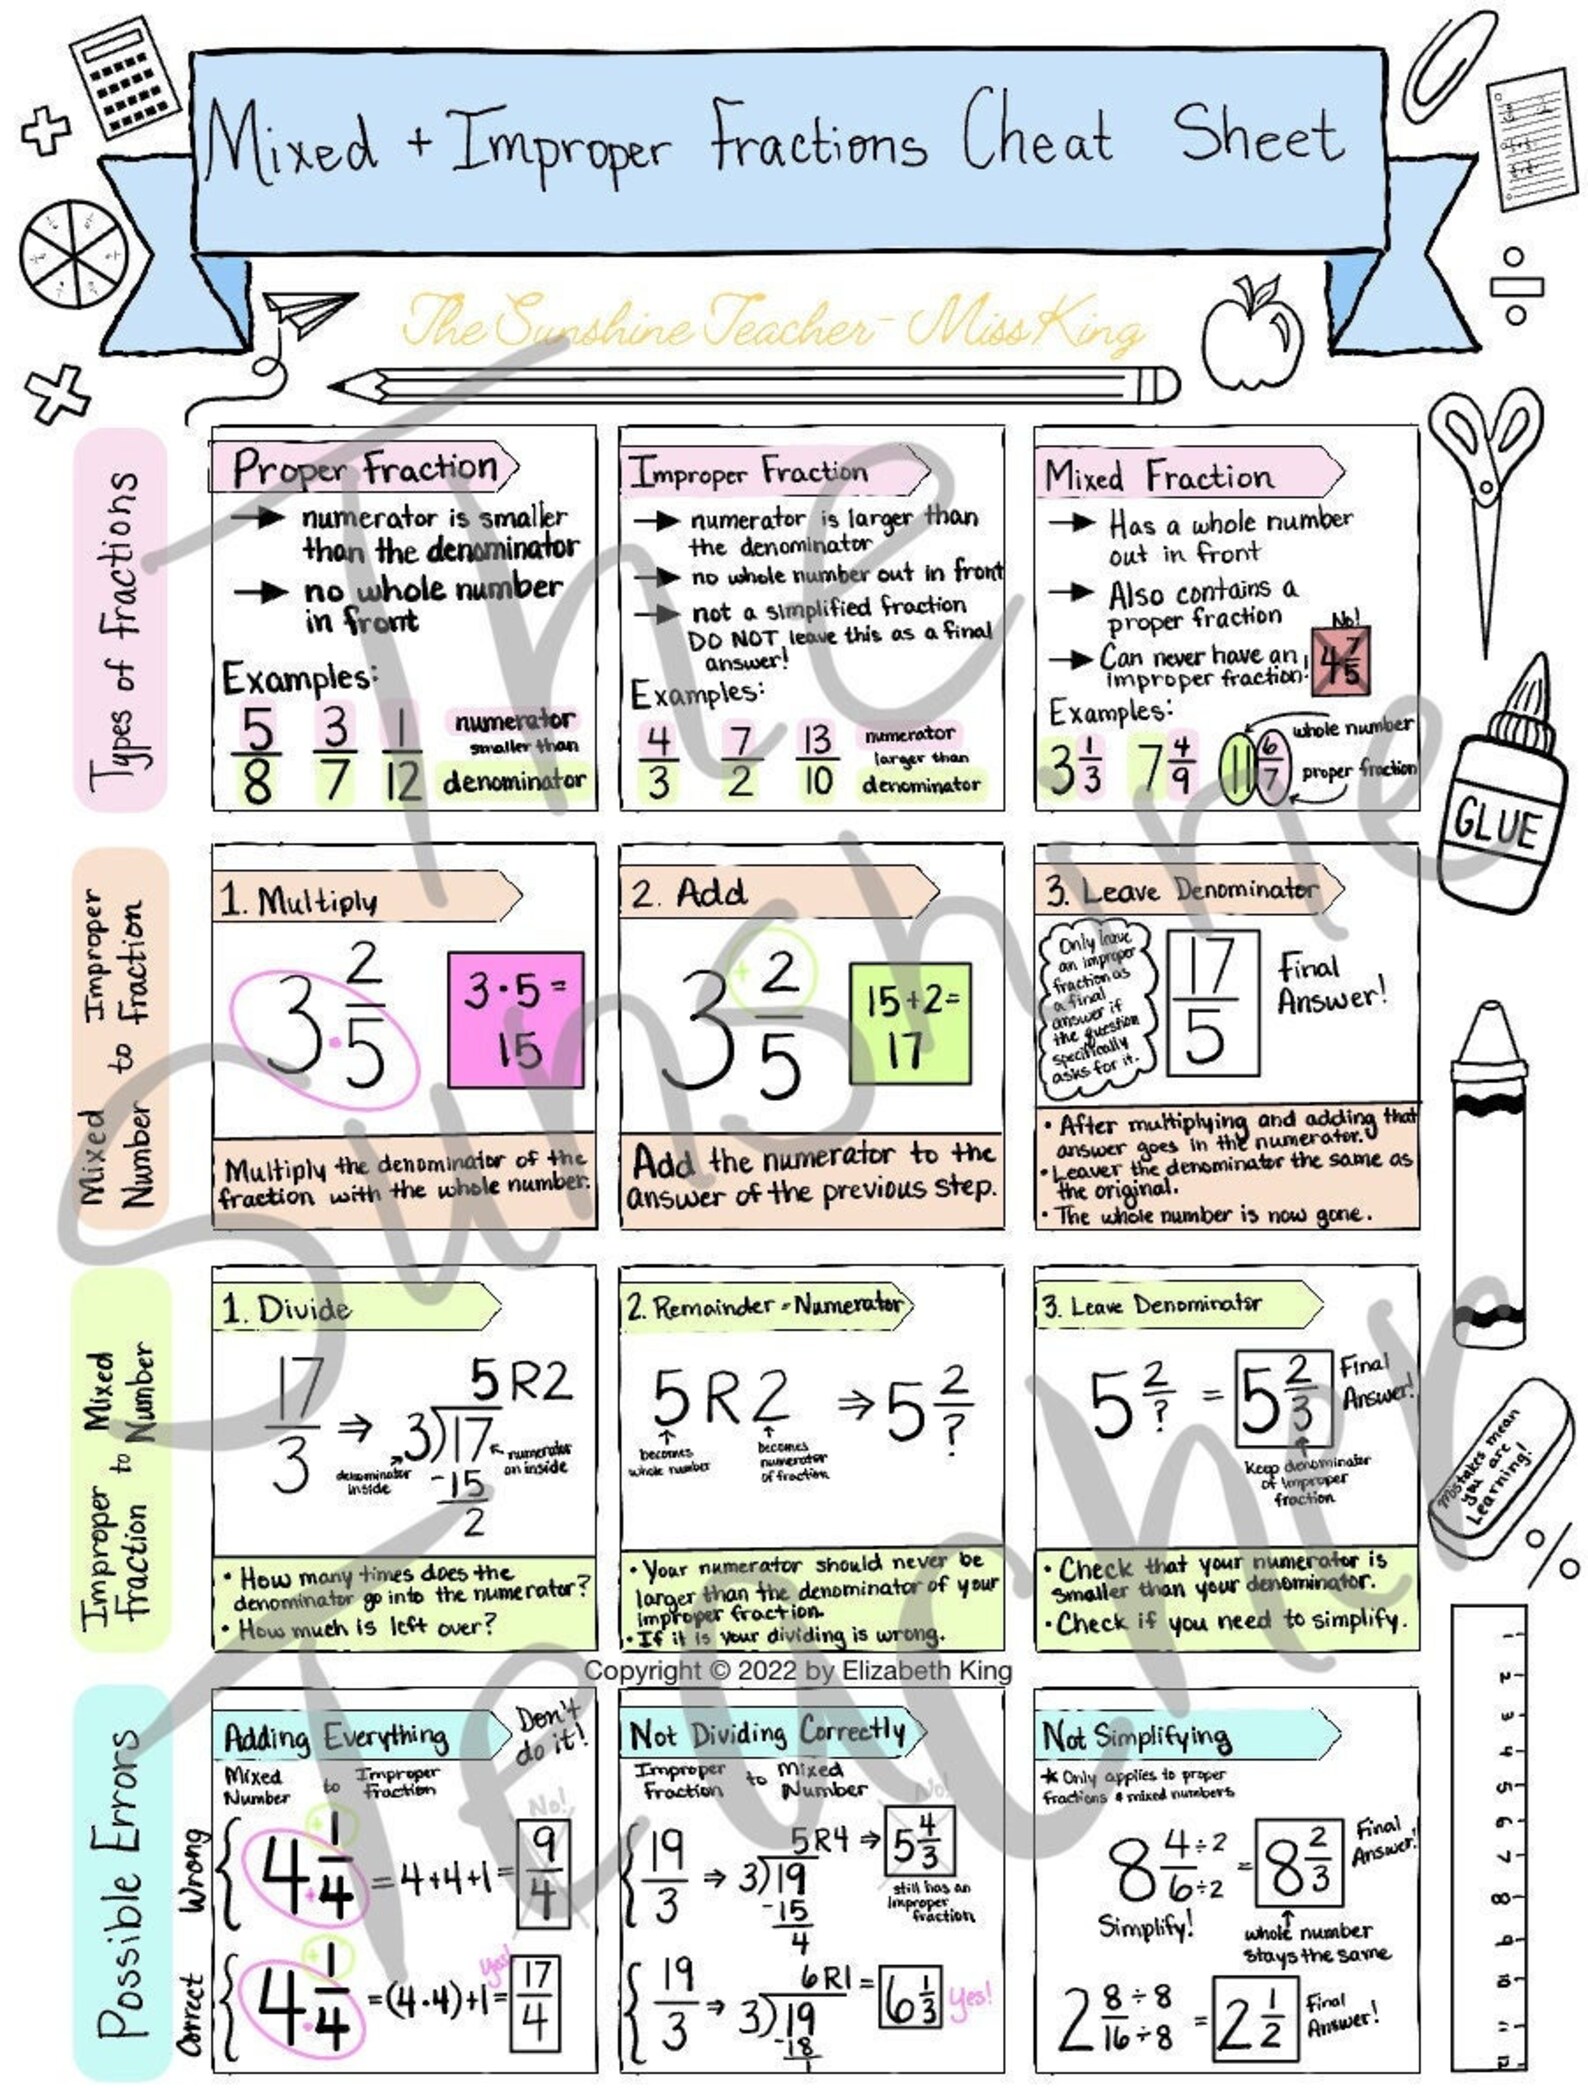 Mixed + Improper Fractions Cheat Sheet
The Sunshine Teacher - Miss King
Types of Fractions
Proper Fraction
→ numerator is smaller
than the denominator
→ no whole number
in front
Examples:
5/8 3/7 1/12
numerator
smaller than
denominator
Improper Fraction
→ numerator is larger than
the denominator
→ no whole number out in front
→ not a simplified fraction
DO NOT leave this as a final
answer!
Examples:
4/3 7/2 13/10
numerator
larger than
denominator
Mixed Fraction
→ Has a whole number
out in front
→ Also contains a
proper fraction
→ Can never have an
improper fraction!
No!
4 7/5
Examples:
3 1/3 7 4/9 11 6/7
whole number
proper fraction
GLUE
Mixed Number to Improper Fraction
1. Multiply
3 · 2/5
3·5=
15
Multiply the denominator of the
fraction with the whole number.
2. Add
3 + 2/5
15+2=
17
Add the numerator to the
answer of the previous step.
3. Leave Denominator
Only leave
an improper
fraction as
a final
answer if
the question
specifically
asks for it.
17/5
Final
Answer!
• After multiplying and adding that
answer goes in the numerator.
• Leaver the denominator the same as
the original.
• The whole number is now gone.
Improper Fraction to Mixed Number
1. Divide
17/3 ⇒ 3)17
5 R2
-15
2
denominator
inside
numerator
on inside
• How many times does the
denominator go into the numerator?
• How much is left over?
2. Remainder = Numerator
5 R 2 ⇒ 5 2/?
becomes
whole number
becomes
numerator
of fraction
• Your numerator should never be
larger than the denominator of your
improper fraction.
• If it is your dividing is wrong.
3. Leave Denominator
5 2/? = 5 2/3
Final
Answer!
Keep denominator
of improper
fraction
• Check that your numerator is
smaller than your denominator.
• Check if you need to simplify.
Mistakes mean
you are
Learning!
Copyright © 2022 by Elizabeth King
Possible Errors
Adding Everything
Don't
do it!
Mixed
Number
to
Improper
Fraction
Wrong
4 + 1/4 = 4+4+1 = 9/4
No!
Correct
4 · + 1/4 = (4·4)+1 = 17/4
Yes!
Not Dividing Correctly
Improper
Fraction
to
Mixed
Number
19/3 ⇒ 3)19
5R4 ⇒ 5 4/3
-15
4
No!
still has an
improper
fraction
19/3 ⇒ 3)19
6R1 = 6 1/3
-18
1
Yes!
Not Simplifying
* Only applies to proper
fractions & mixed numbers
8 4÷2/6÷2 = 8 2/3
Final
Answer!
Simplify!
whole number
stays the same
2 8÷8/16÷8 = 2 1/2
Final
Answer!
1
2
3
4
5
6
7
8
9
10
11
12
The
Sunshine
Teacher